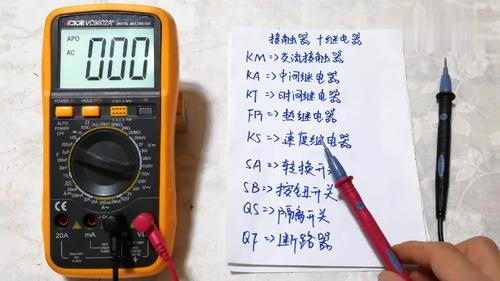 VICTOR VC9802A+ DIGITAL MULTIMETER
APO
AC
000
POWER HOLD
OFF
20A mA
接触器 十继电器
KM=>交流接触器
KA=>中间继电器
KT=>时间继电器
FR=>热继电器
KS=>速度继电器
SA=>转换开关
SB=>按钮开关
QS=>隔离开关
QF=>断路器